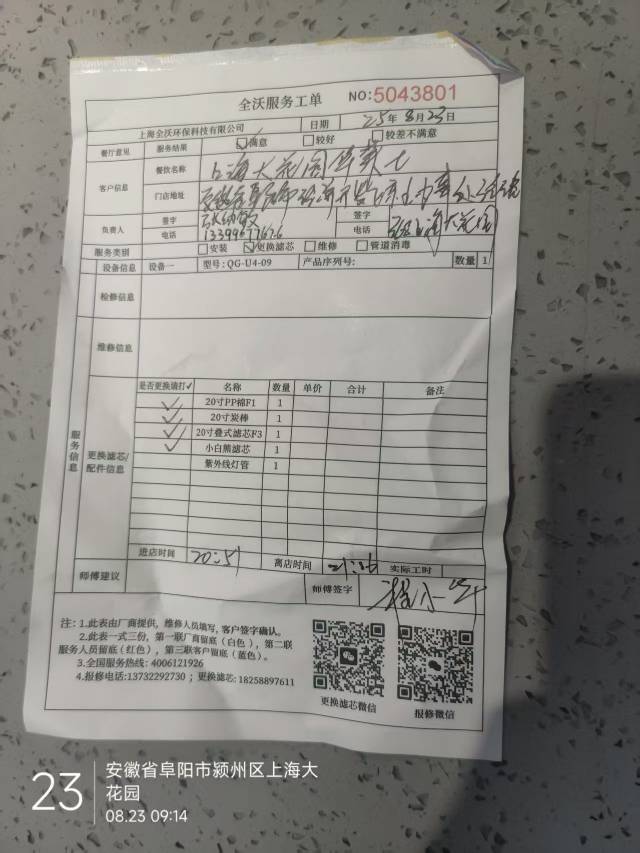 全沃服务工单 NO:5043801
上海全沃环保科技有限公司 日期 25年8月23日
餐厅意见 服务结果 ☑满意 □较好 □较差不满意
客户信息 餐饮名称 上海大花园华莱士
门店地址
负责人 签字 签字
电话 电话 上海大花园
服务类别 □安装 ☑更换滤芯 □维修 □管道消毒
设备信息 设备一 型号: QG-U4-09 产品序列号: 数量 1
检修信息
维修信息
服务信息
更换滤芯/配件信息
是否更换请打✓ 名称 数量 单价 合计 备注
✓ 20寸PP棉F1 1
✓ 20寸炭棒 1
✓ 20寸叠式滤芯F3 1
✓ 小白熊滤芯 1
紫外线灯管 1
进店时间 20:51 离店时间 21:16 实际工时
师傅建议 师傅签字
注: 1.此表由厂商提供, 维修人员填写, 客户签字确认。
2.此表一式三份, 第一联厂商留底(白色), 第二联
服务人员留底(红色), 第三联客户留底(蓝色)。
3.全国服务热线: 4006121926
4.报修电话:13732292730; 更换滤芯: 18258897611
更换滤芯微信 报修微信
23
安徽省阜阳市颍州区上海大
花园
08.23 09:14